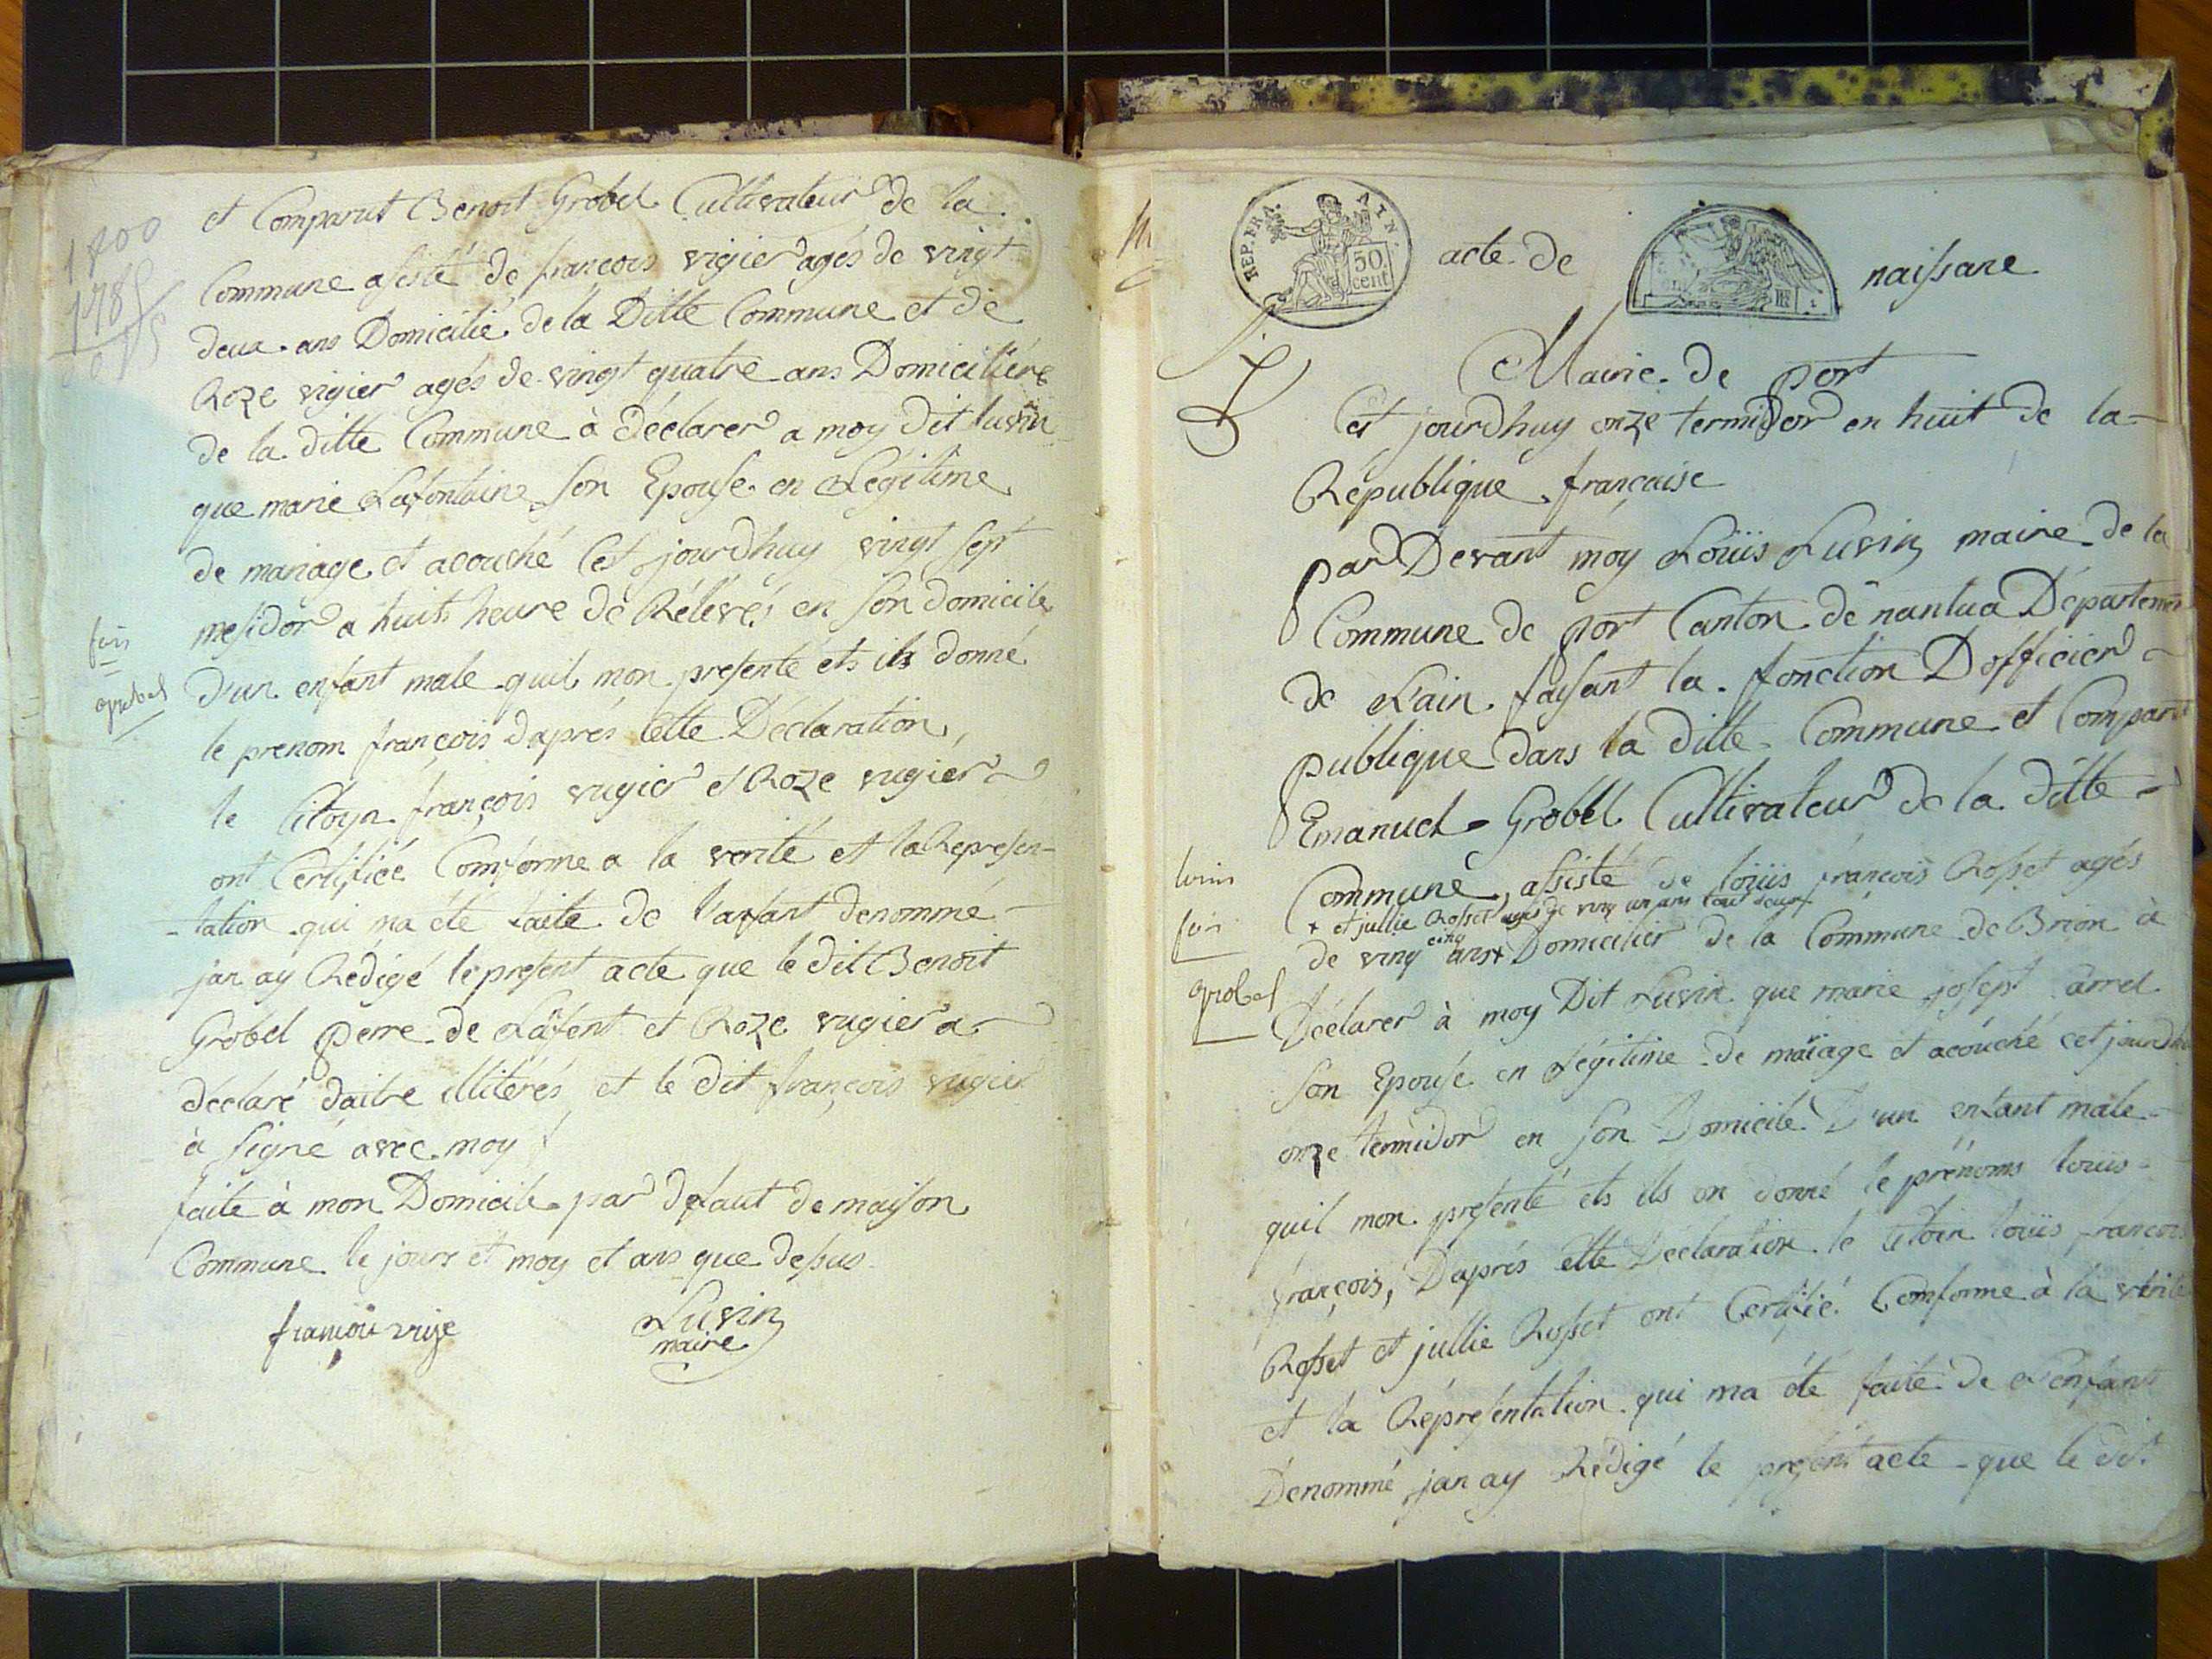 1800
1785
et Comparut Benoit Grobel Cultivateur de la
Commune asisté de françois vigier agés de vingt
deux ans Domicilié de la Ditte Commune et de
Roze vigier agés de vingt quatre ans Domiciliére
de la ditte Commune à déclarer a moy dit luvin
que marie Lafontaine son Epouse en Légitime
de mariage et acouché Cet jourdhuy vingt sept
mesidor a huit heure de Rélévé en son domicile
fois
grobel
D'un enfant male quil mon presenté ets ils donné
le prenom françois daprés cette Déclaration,
le Citoyn françois vugier et Roze vugier
ont Certifiéé Comforme a la verité et la Represen-
-tation qui ma été faite de l'anfant denommé
jan ay Rédigé le present acte que le dit Benoit
Grobel perre de Lafent et Roze vugier a
déclaré daitre illitérés et le dit françois vugier
à signé avec moy
faite à mon Domicile par défaut de maison
Commune le jours et moy et ans que desus
françoi vige Luvin
maire
REP. FRA. AIN. 50 cent
acte de naissane
Mairie de port
Cet jourdhuy onze termidor en huit de la
République française
par Devant moy Loüis Luvin maire de la
Commune de port Canton de nantua Départemen
de L'ain faisant la fonction D'officier
publique dans la ditte Commune et Comparut
Emanuel Grobel Cultivateur de la ditte
Commune, assisté de loüis françois Rosset agés
+ et jullie Rosset agés de ving un ans tout deux
de ving cinq ans + Domicilier de la Commune de Brion à
louis
fois
grobel
Déclarer à moy Dit Luvin que marie josept arrel
son Epouse en Légitime de maiage et acouché cet jourdhu
onze termidor en son Domicile D'un enfant male
quil mon presenté ets ils on donné le prénoms louis
françois, Daprés cette Déclaration le Citoin loüis françois
Rosset et jullie Rosset ont Certifié Comforme à la vérité
et la Répresentation qui ma été faite de L'enfant
Dénommé jan ay Rédigé le présent acte que le dit